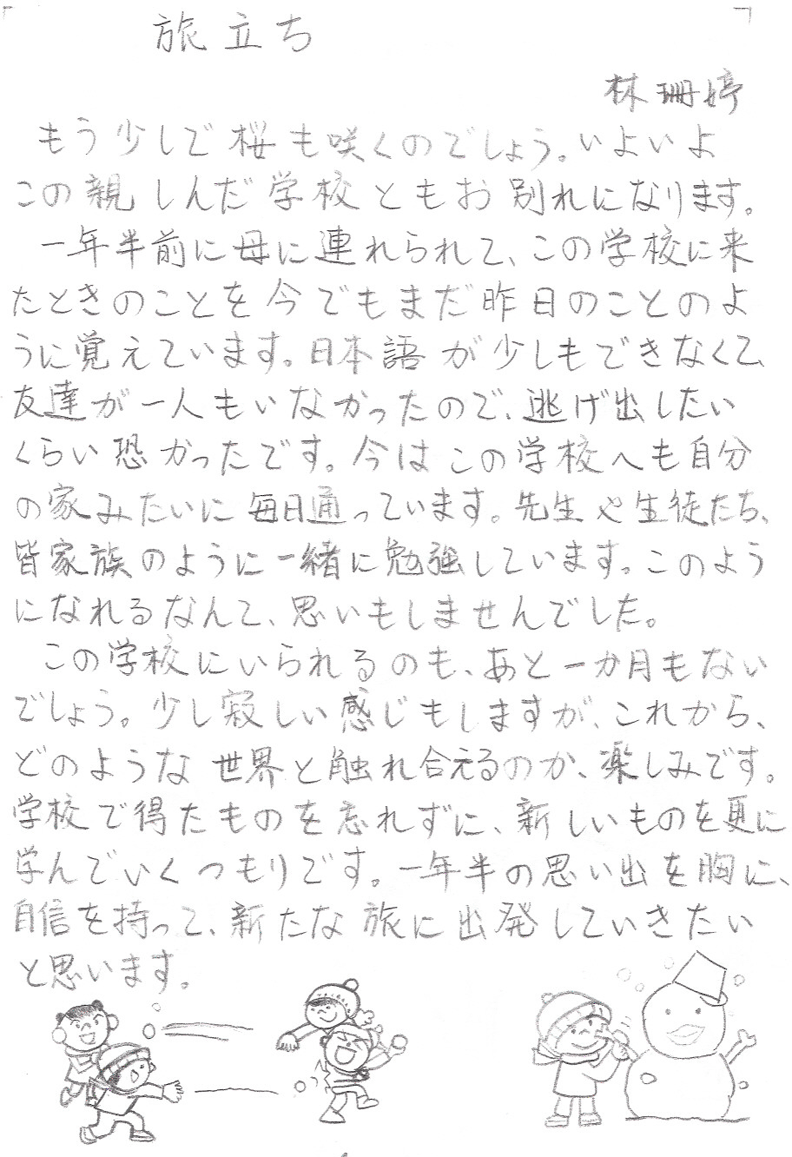 旅立ち
林珊婷
もう少しで桜も咲くのでしょう。いよいよ
この親しんだ学校ともお別れになります。
一年半前に母に連れられて、この学校に来
たときのことを今でもまだ昨日のことのよ
うに覚えています。日本語が少しもできなくて、
友達が一人もいなかったので、逃げ出したい
くらい恐かったです。今はこの学校へも自分
の家みたいに毎日通っています。先生や生徒たち、
皆家族のように一緒に勉強しています。このよう
になれるなんて、思いもしませんでした。
この学校にいられるのも、あと一か月もない
でしょう。少し寂しい感じもしますが、これから、
どのような世界と触れ合えるのか、楽しみです。
学校で得たものを忘れずに、新しいものを更に
学んでいくつもりです。一年半の思い出を胸に、
自信を持って、新たな旅に出発していきたい
と思います。